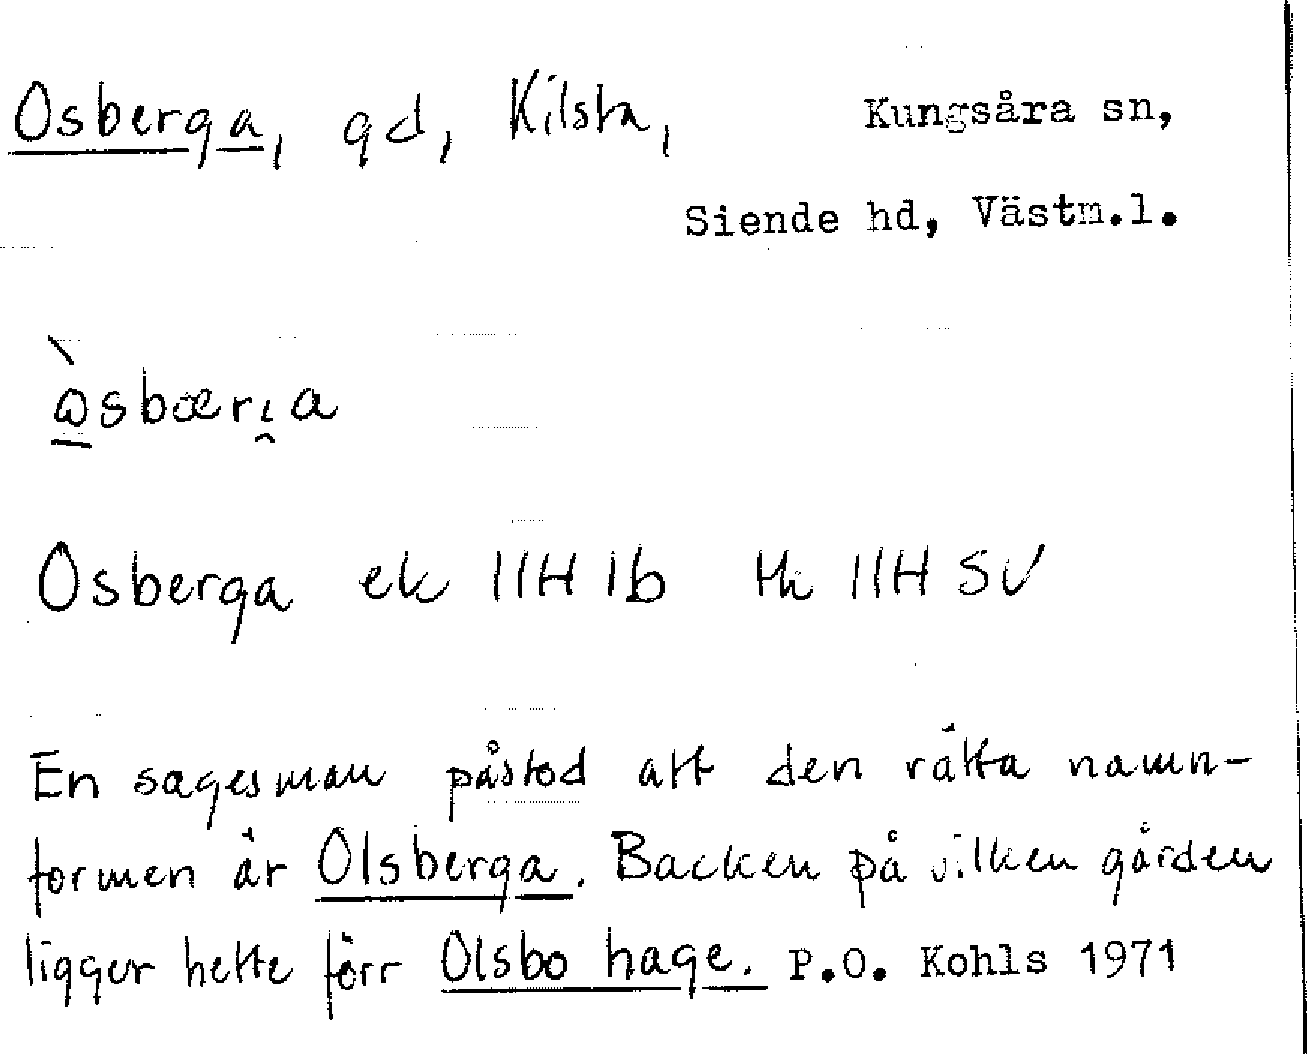 Osberga, gd, Kilsta, Kungsåra sn,
Siende hd, Västm.l.
Osberga ek 11H 1b tk 11H SV
En sagesman påstod att den rätta namn-
formen är Olsberga. Backen på vilken gården
ligger hette förr Olsbo hage. P.O. Kohls 1971